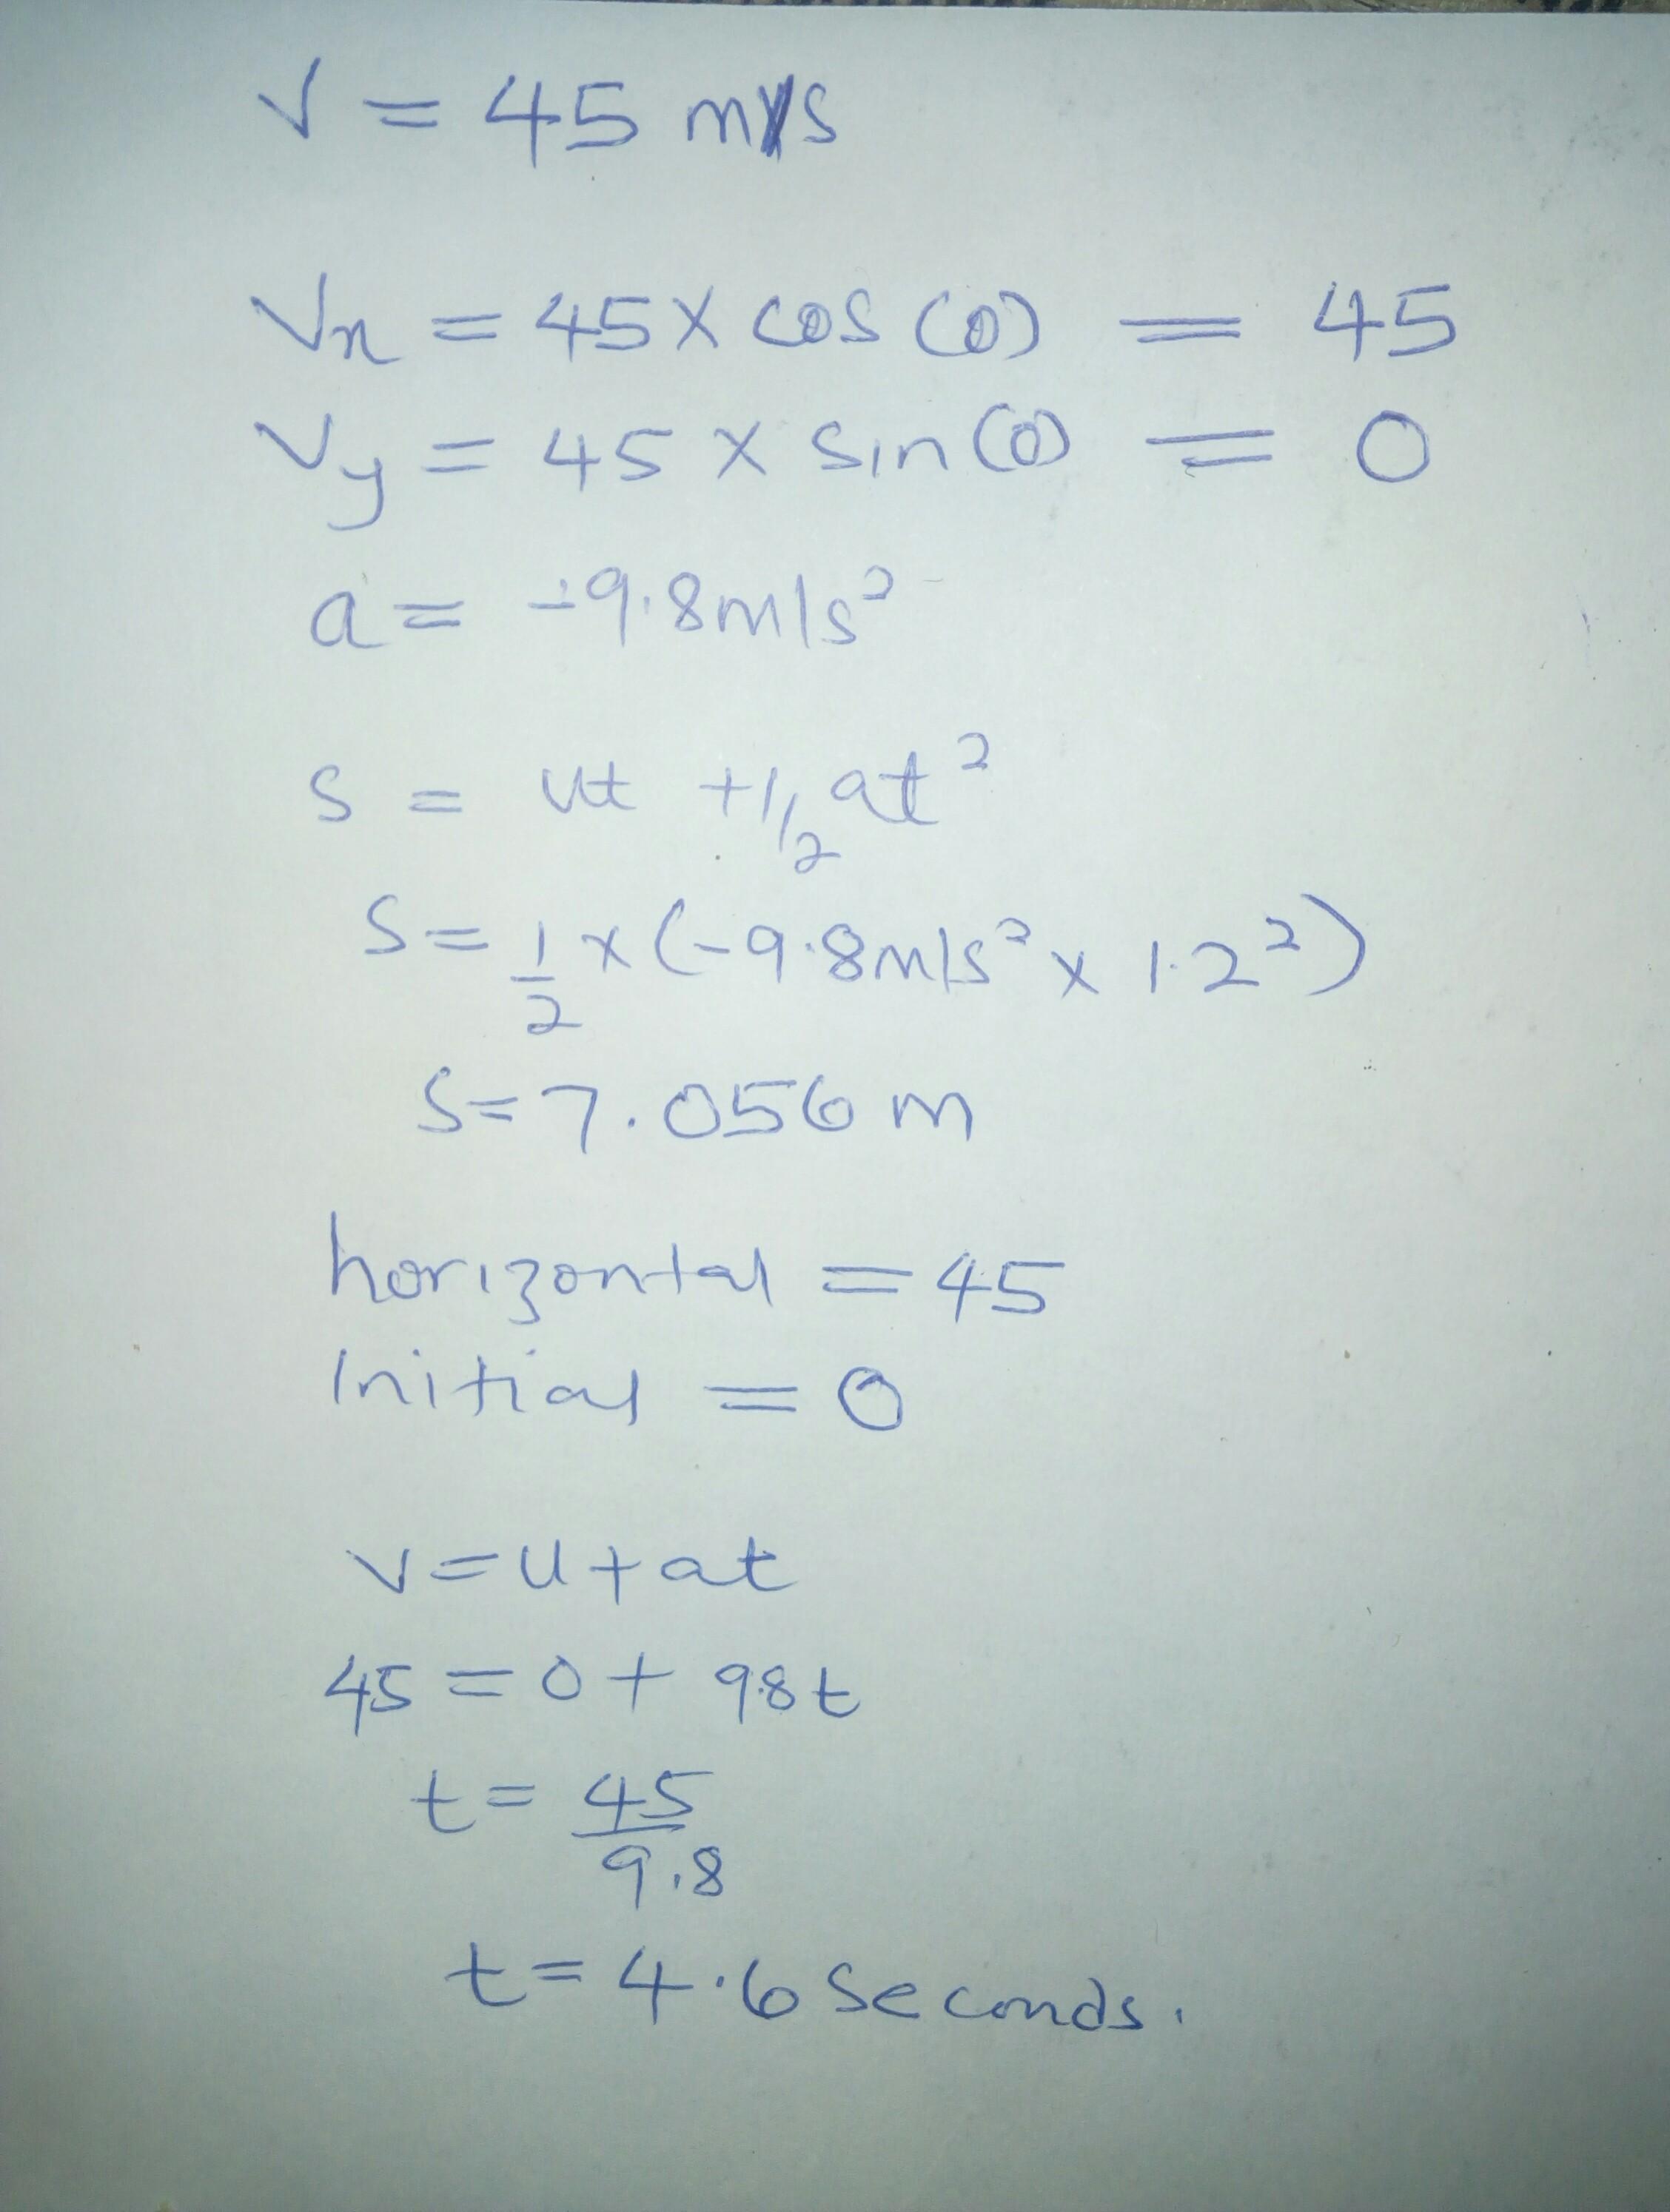 V = 45 m/s
Vx = 45 x cos (0) = 45
Vy = 45 x sin (0) = 0
a = -9.8m/s²
s = ut + 1/2 at²
S = 1/2 x (-9.8m/s² x 1.2²)
S = 7.056 m
horizontal = 45
Initial = 0
v = u + at
45 = 0 + 9.8t
t = 45/9.8
t = 4.6 Seconds.